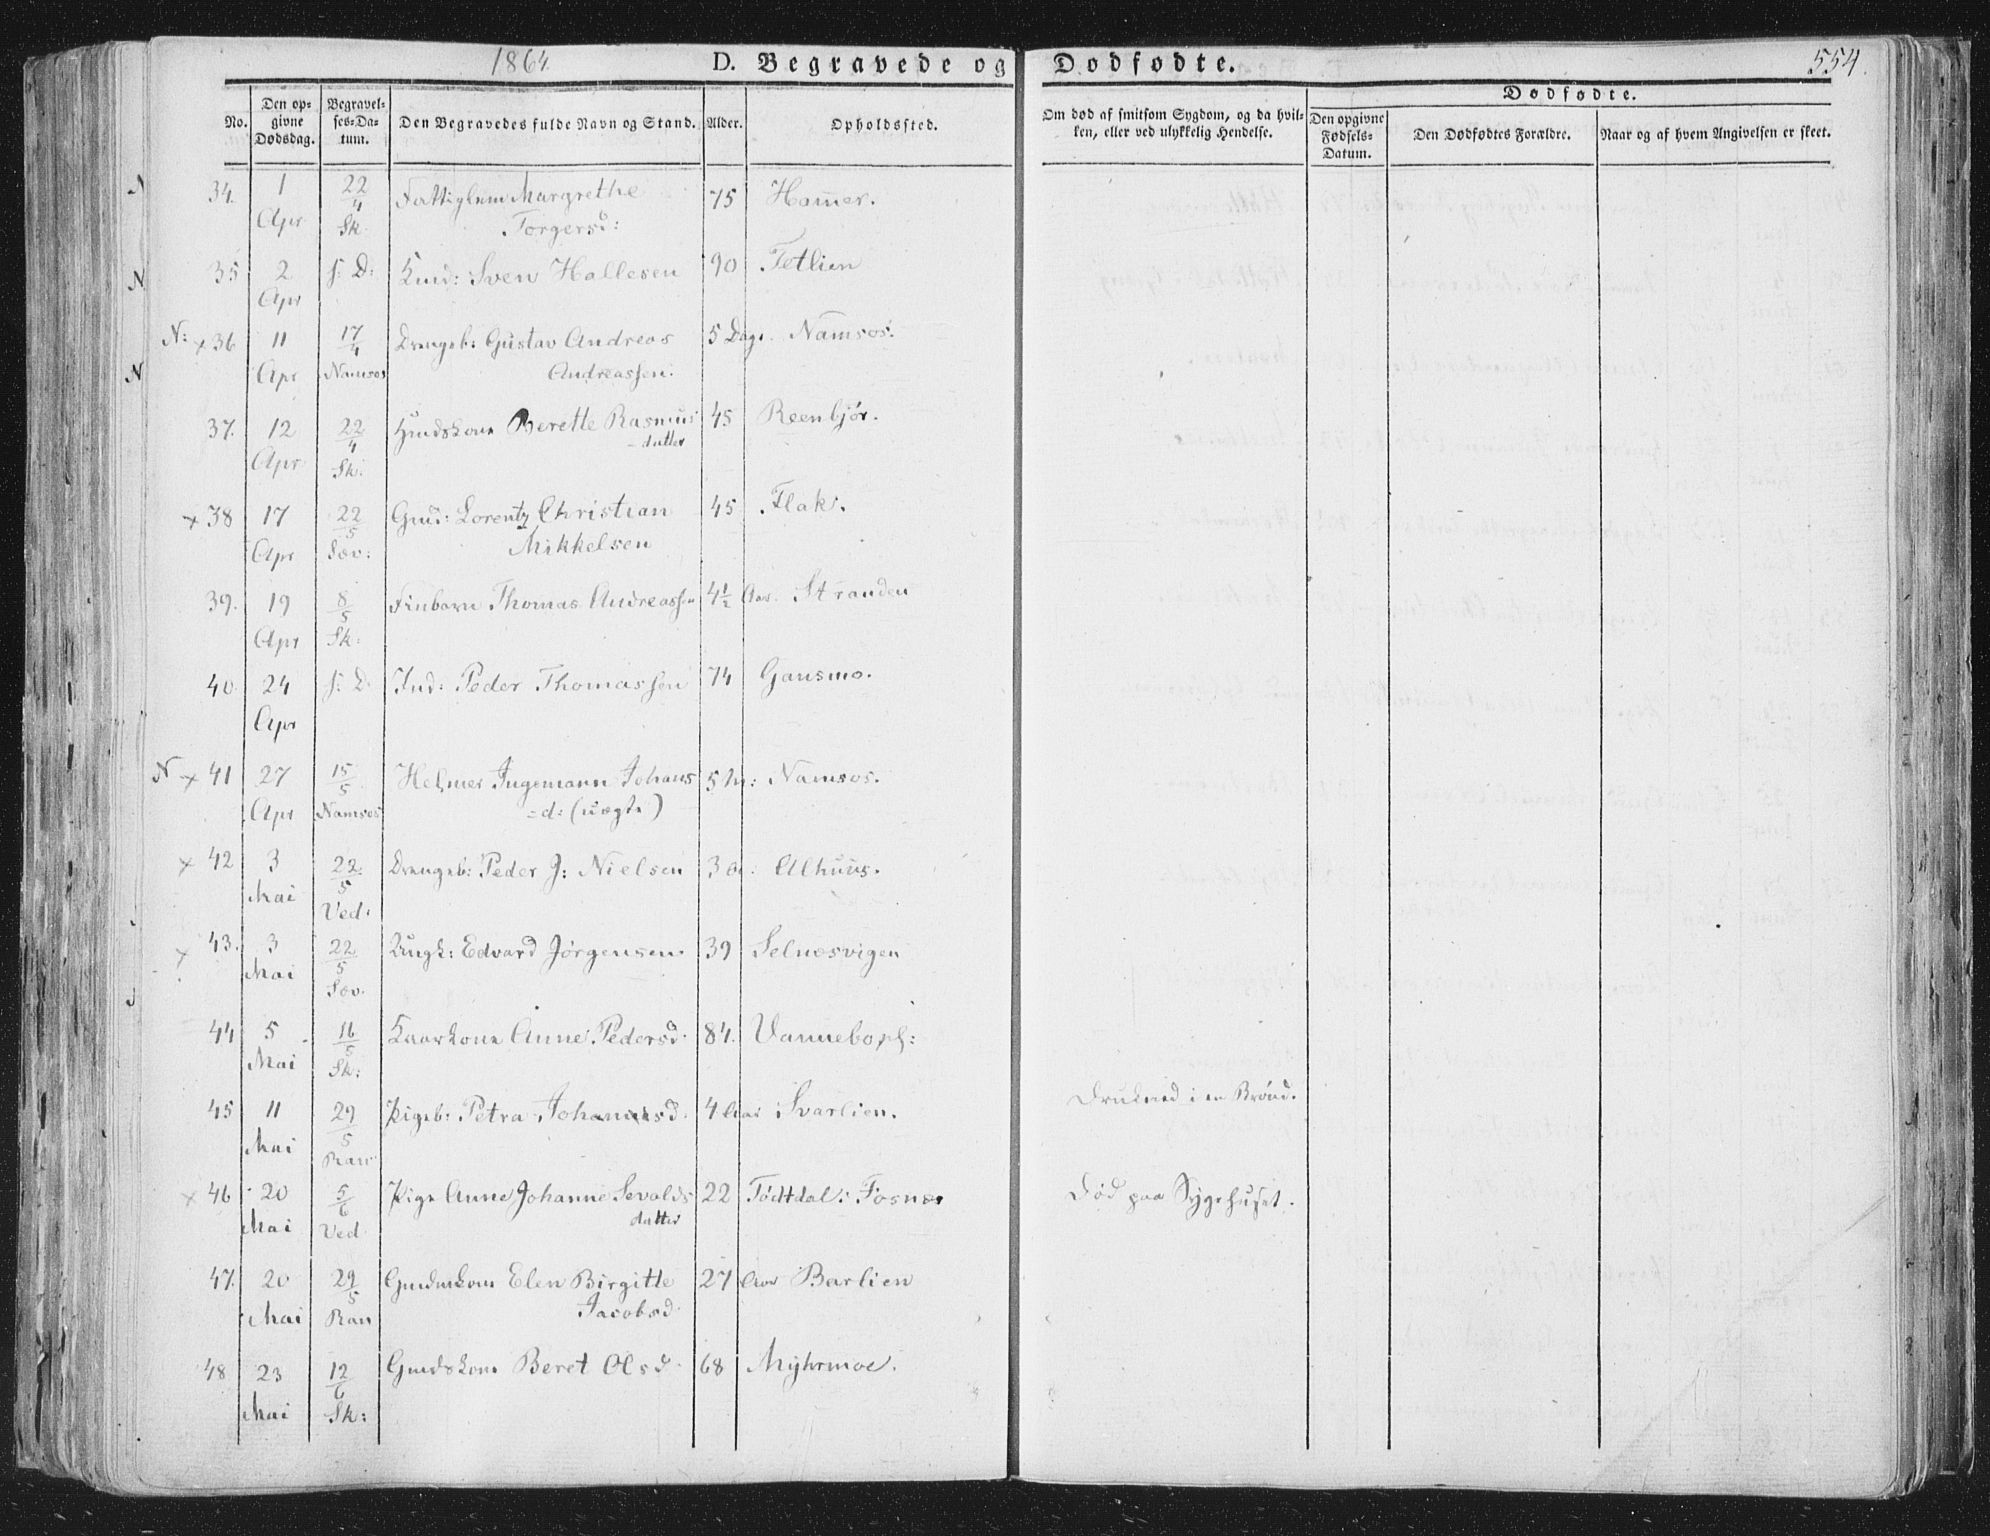 1864
D. Begravede og Dødfødte.
554.
No.
Den opgivne Dødsdag.
Begravelses-Datum.
Den Begravedes fulde Navn og Stand.
Alder.
Opholdssted.
Om død af smitsom Sygdom, og da hvilken, eller ved ulykkelig Hendelse.
Dødfødte.
Den opgivne Fødsels-Datum.
Den Dødfødtes Forældre.
Naar og af hvem Angivelsen er skeet.
34. 1 Apr 22/4 Sk. Fattiglem Margrethe 75 Hammer.
Torgersd:
35 2 Apr s: D: Kaard: Sven Hallesen 90 Tetlien
N: x 36 11 Apr 17/4 Namsos Drengeb: Gustav Andreas 5 Dage. Namsos.
Andreassen.
37. 12 Apr 22/4 Sk: Gmdskone Berette Rasmus 45 Reenbjør.
-datter
x 38 17 Apr 22/5 Sæv: Gmd: Lorentz Christian 45 Flak.
Mikkelsen
39. 19 Apr 8/5 Sk: Finbarn Thomas Andreassen 4 1/2 Aar. Stranden
40. 24 Apr s: D. Ind: Peder Thomassen 74 Gansmo.
N x 41 27 Apr 15/5 Namsos Helmer Ingemann Johans 5 M: Namsos.
-d: (uægte)
x 42 3 Mai 22/5 Ved: Drengeb: Peder J: Nielsen 3 Alhuus.
x 43. 3 Mai 22/5 Sæv. Ungk: Edvard Jørgensen. 39 Selnæsvigen
44 5 Mai 16/5 Sk: Kaarkone Anne Pedersd. 84. Vannebopl:
45 11 Mai 29/5 Ran Pigeb: Petra Johannesd. 4 Aar Svarlien. Druknet i en Brønd.
x 46 20 Mai 5/6 Ved. Pige Anne Johanne Sevalds 22 Tødtdal: Fosnes Død paa Sygehuset.
datter
47. 20 Mai 29/5 Ran Gmdskone Elen Birgitte 27 Aar Barlien
Jacobsd.
48 23 Mai 12/6 Sk: Gmdskone Beret Olsd. 68 Myhrmoe.